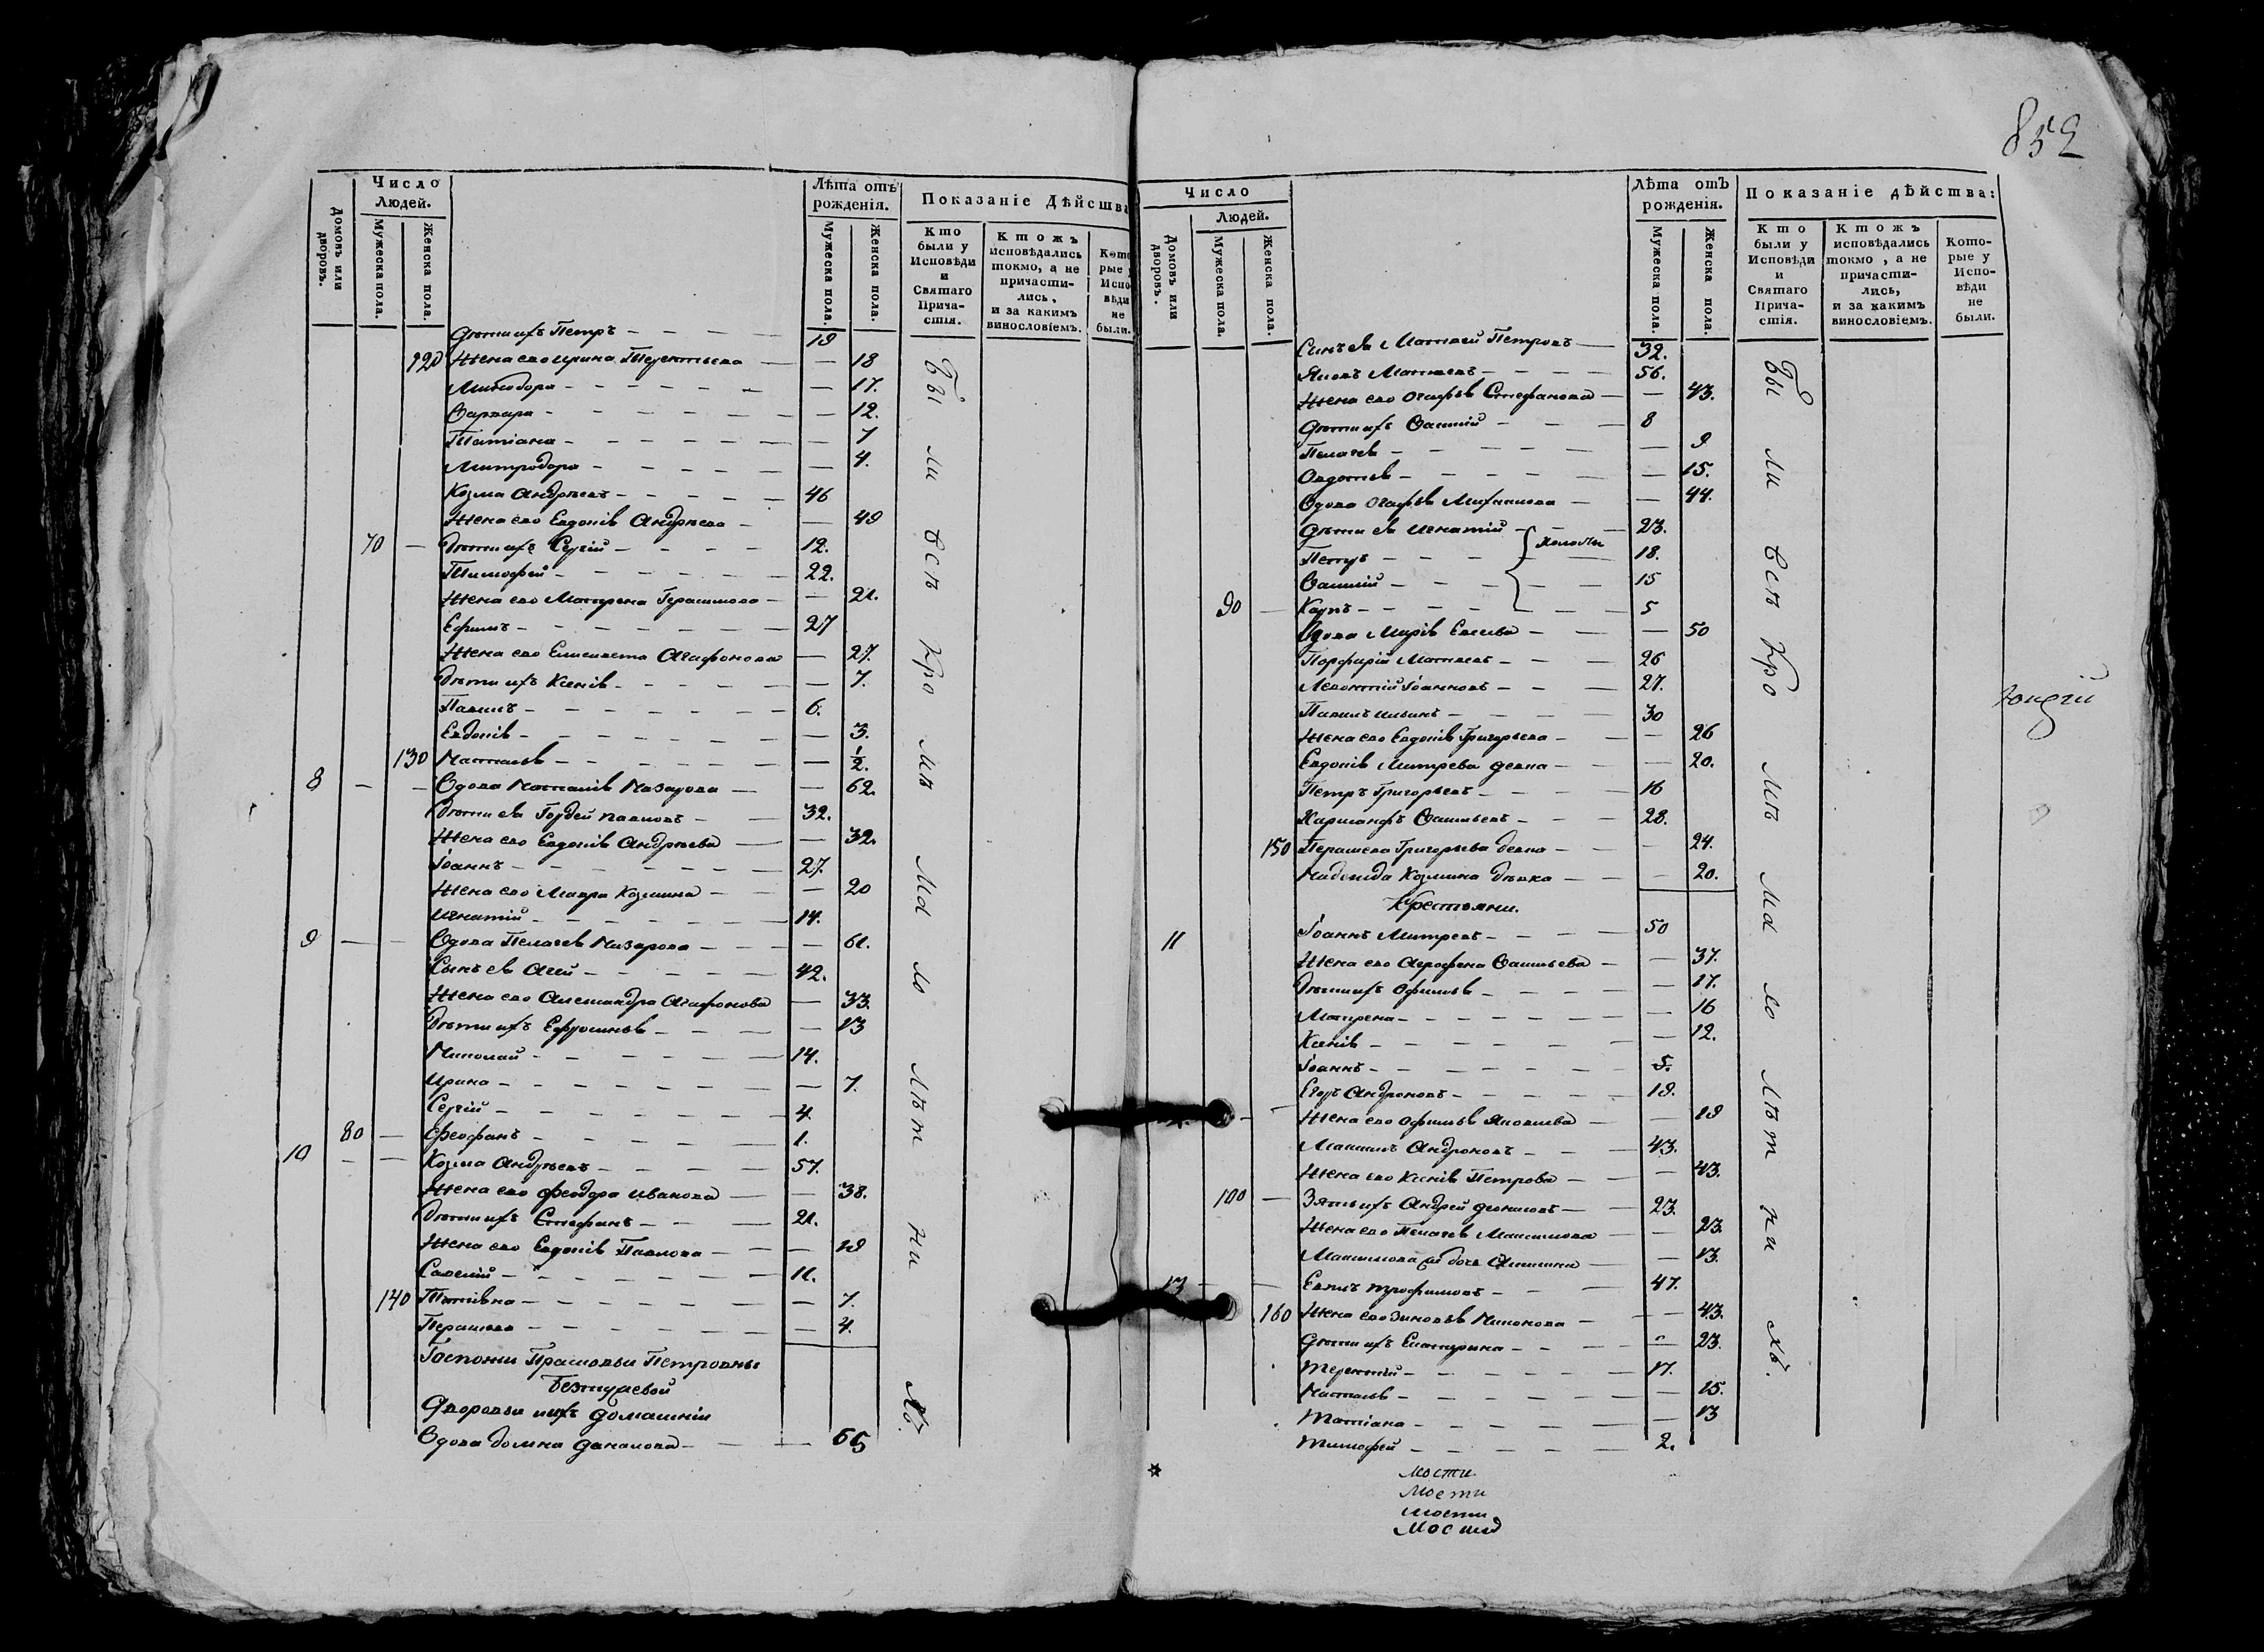 852
Число
Людей.
Домовъ или дворовъ.
Мужеска пола.
Женска пола.
Лѣта отъ рожденія.
Мужеска пола.
Женска пола.
Показаніе Дѣйства
Кто были у Исповѣди и Святаго Прича-стія.
Ктожъ исповѣдались токмо, а не причасти-лись, и за какимъ винословіемъ.
рые Испо вѣди не были.
Дѣти ихъ Петръ — 19
120 Жена его Ирина Терентьева — 18
Минодора — 17.
Варвара — 12.
Татіана — 7
Митродора — 4.
Козма Андрѣевъ — 46
Жена его Евдокія Андрѣева — 49
70 — Дѣти ихъ Сергій — 12.
Тимофей — 22.
Жена его Матрена Герасимова — 21.
Ефимъ — 27
Жена его Елисавета Агафонова — 27.
Дѣти ихъ Ксенія — 7.
Павелъ — 6.
Евдокія — 3.
130 Наталья — ½.
8 — — Вдова Наталія Назарова — 62.
Дѣти ея Гордей Павловъ — 32.
Жена его Евдокія Андрѣева — 32.
Іоаннъ — 27.
Жена его Мавра Козмина — 20
Игнатій — 14.
9 — — Вдова Пелагея Назарова — 61.
Сынъ ея Агей — 42.
Жена его Александра Агафонова — 33.
Дѣти ихъ Ефросинья — 13
Николай — 14.
Ирина — 7.
Сергій — 4.
80 — Феофанъ — 1.
10 — — Козма Андрѣевъ — 57.
Жена его Феодора Иванова — 38.
Дѣти ихъ Стефанъ — 21.
Жена его Евдокія Павлова — 19
Савелій — 11.
140 Татіяна — 7.
Парасковья — 4.
Госпожи Прасковьи Петровны
Дворовыи ихъ домашніи
Вдова Домна Данилова — 65
Бы ли всѣ кро мѣ ма ло лѣт ни хъ.
Число
Людей.
Домовъ или дворовъ.
Мужеска пола.
Женска пола.
Лѣта отъ рожденія.
Мужеска пола.
Женска пола.
Показаніе дѣйства:
Кто были у Исповѣди и Святаго Прича-стія.
Ктожъ исповѣдались токмо, а не причасти-лись, и за какимъ винословіемъ.
Кото-рые у Испо-вѣди не были.
Сынъ ея Матвей Петровъ — 32.
Яковъ Матвеевъ — 56.
Жена его Агафья Стефанова — 43.
Дѣти ихъ Василій — 8
Пелагея — 9
Авдотья — 15.
Вдова Агафья — 44.
Дѣти ея Игнатій — 23.
Петръ — 18.
Василій — 15
90 — Карпъ — 5
Вдова Марія — 50
Порфирій Матвеевъ — 26
Леонтій Іоанновъ — 27.
Павелъ Ильинъ — 30
Жена его Евдокія Григорьева — 26
Евдокія Митрева девка — 20.
Петръ Григорьевъ — 16
Васильевъ — 28.
150 Григорьева девка — 24.
Надежда Козмина дѣвка — 20.
Крестьяни.
11 Іоаннъ Митревъ — 50
Жена его Агрофена Васильева — 37.
Дѣти ихъ Офимья — 17.
Матрена — 16
Ксенія — 12.
Іоаннъ — 5.
Егоръ Андроновъ — 19.
Жена его Офимья Яковлева — 19
Андроновъ — 43.
Жена его Ксенія Петрова — 43.
100 — Зять ихъ Андрей — 23.
Жена его Пелагея Максимова — 23.
Максимова — 13.
13 — — Трофимовъ — 47.
160 Жена его Зиновья Никонова — 43.
Дѣти ихъ Екатерина — 23.
Терентій — 17.
Наталья — 15.
Татіана — 13
Тимофей — 2.
Бы ли всѣ кро мѣ ма ло лѣт ни хъ.